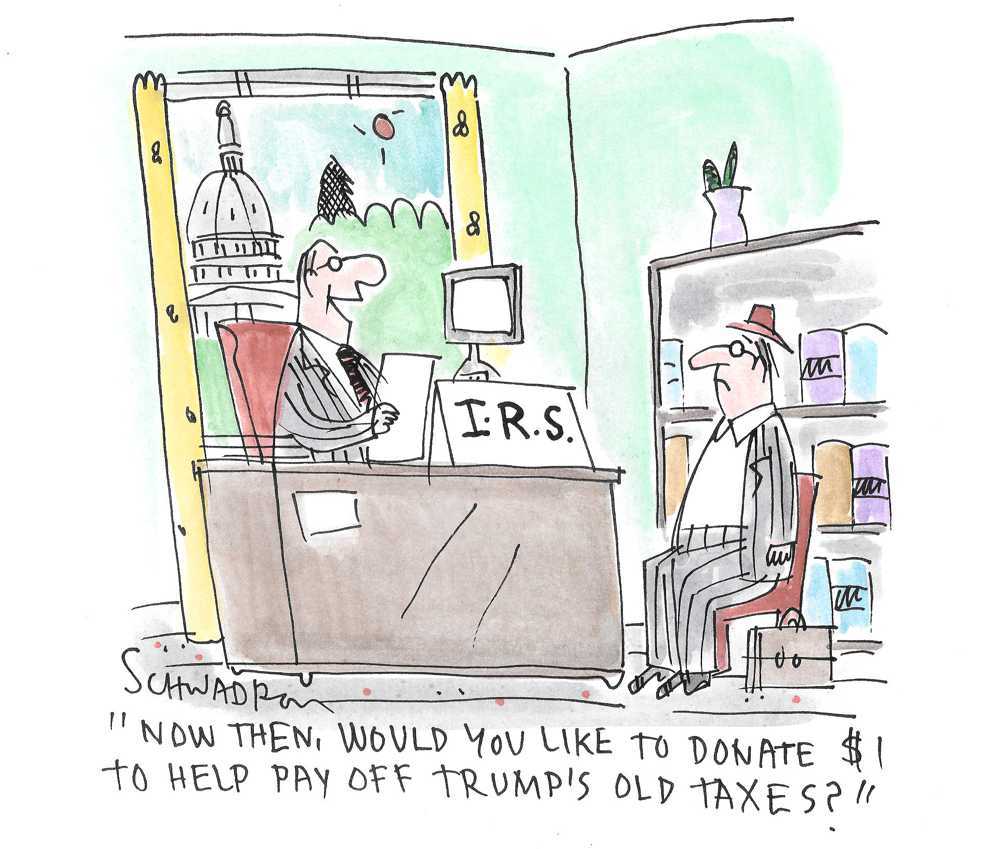 I.R.S.
SCHWADRON
"NOW THEN, WOULD YOU LIKE TO DONATE $1
TO HELP PAY OFF TRUMP'S OLD TAXES?"